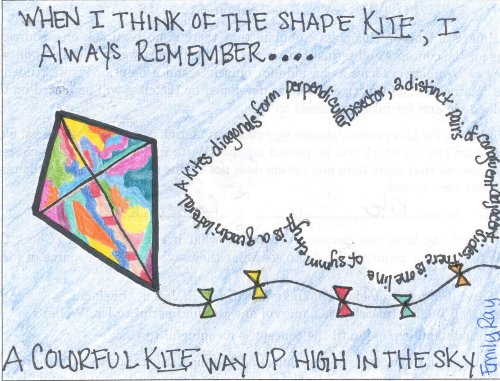 WHEN I THINK OF THE SHAPE KITE, I
ALWAYS REMEMBER....
It is a quadrilateral. A kites diagonals form perpendicular Bisector, 2 distinct pairs of congruent sides. there is one line of symmetry.
A COLORFUL KITE WAY UP HIGH IN THE SKY
Emily Ray